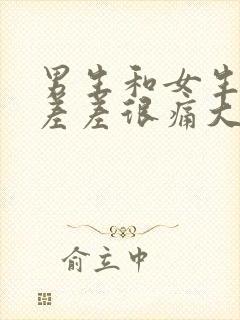 男生和女生
差差很痛大
俞立中